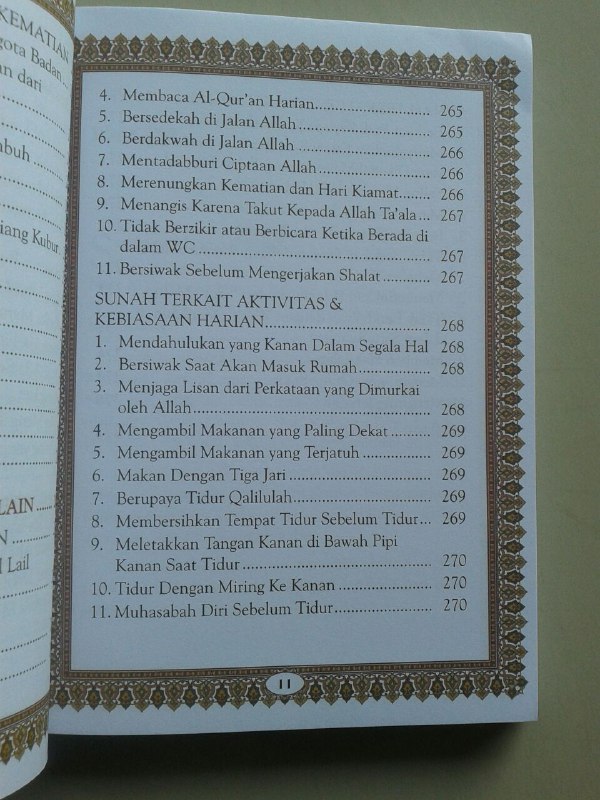 KEMATIAN
gota Badan
an dari
buh
iang Kubur
LAIN
N
l Lail
4. Membaca Al-Qur'an Harian 265
5. Bersedekah di Jalan Allah 265
6. Berdakwah di Jalan Allah 266
7. Mentadabburi Ciptaan Allah 266
8. Merenungkan Kematian dan Hari Kiamat 266
9. Menangis Karena Takut Kepada Allah Ta'ala ... 267
10. Tidak Berzikir atau Berbicara Ketika Berada di
dalam WC 267
11. Bersiwak Sebelum Mengerjakan Shalat 267
SUNAH TERKAIT AKTIVITAS &
KEBIASAAN HARIAN 268
1. Mendahulukan yang Kanan Dalam Segala Hal 268
2. Bersiwak Saat Akan Masuk Rumah 268
3. Menjaga Lisan dari Perkataan yang Dimurkai
oleh Allah 268
4. Mengambil Makanan yang Paling Dekat 269
5. Mengambil Makanan yang Terjatuh 269
6. Makan Dengan Tiga Jari 269
7. Berupaya Tidur Qalilulah 269
8. Membersihkan Tempat Tidur Sebelum Tidur ... 269
9. Meletakkan Tangan Kanan di Bawah Pipi
Kanan Saat Tidur 270
10. Tidur Dengan Miring Ke Kanan 270
11. Muhasabah Diri Sebelum Tidur 270
11